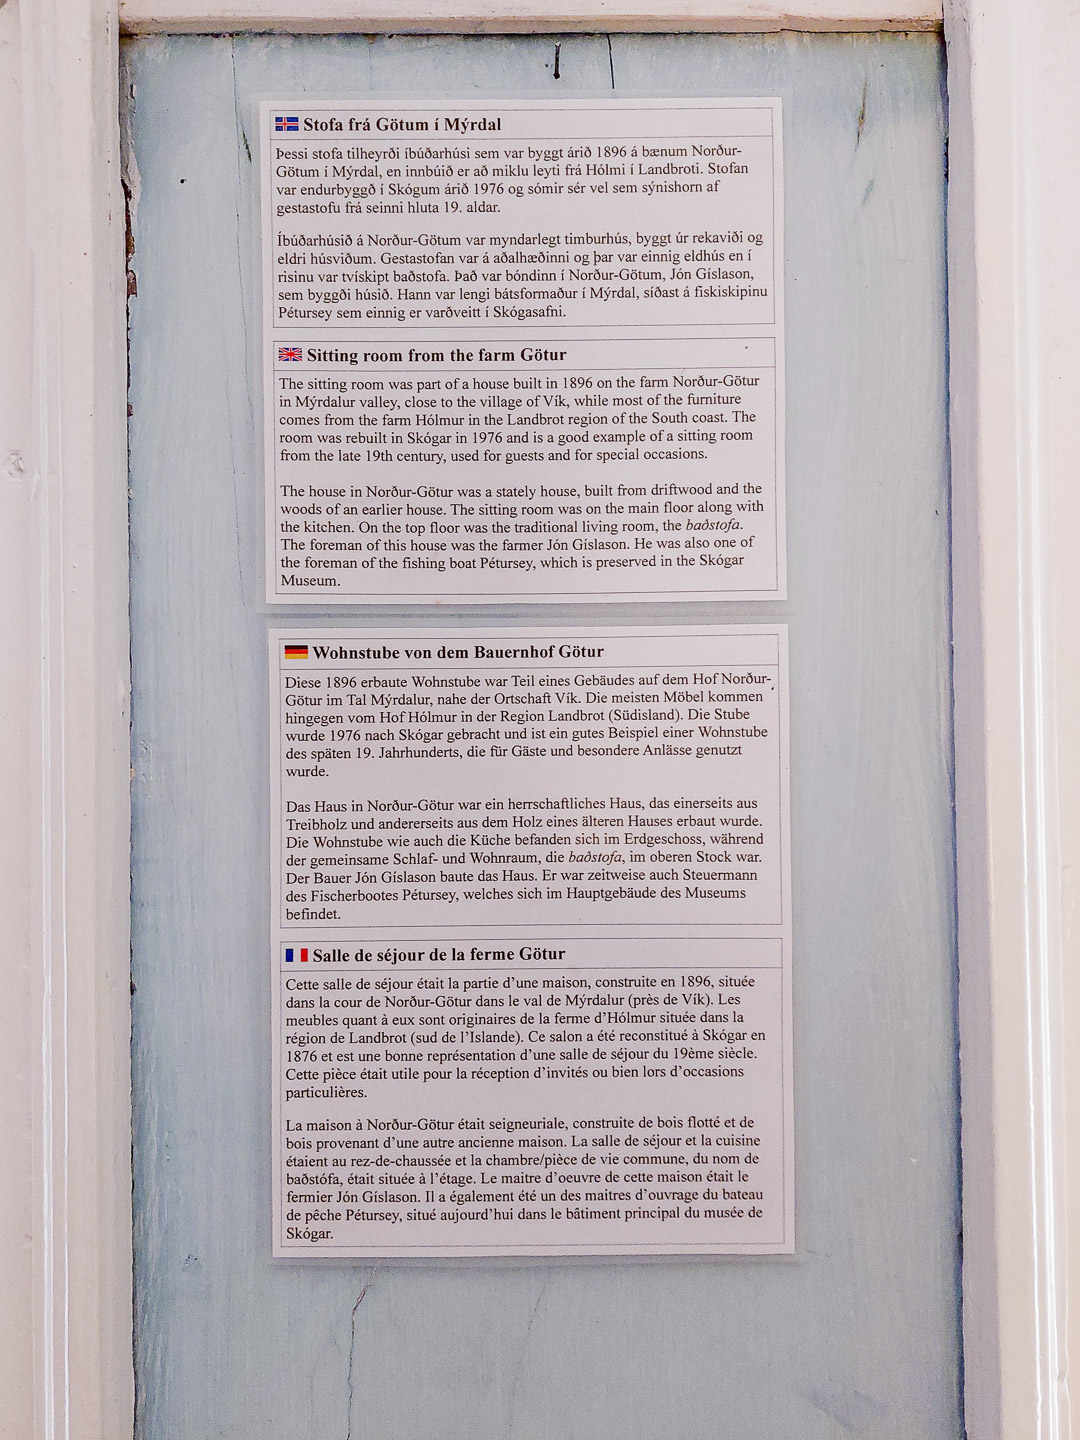 Stofa frá Götum í Mýrdal
Þessi stofa tilheyrði íbúðarhúsi sem var byggt árið 1896 á bænum Norður-
Götum í Mýrdal, en innbúið er að miklu leyti frá Hólmi í Landbroti. Stofan
var endurbyggð í Skógum árið 1976 og sómir sér vel sem sýnishorn af
gestastofu frá seinni hluta 19. aldar.
Íbúðarhúsið á Norður-Götum var myndarlegt timburhús, byggt úr rekaviði og
eldri húsviðum. Gestastofan var á aðalhæðinni og þar var einnig eldhús en í
risinu var tvískipt baðstofa. Það var bóndinn í Norður-Götum, Jón Gíslason,
sem byggði húsið. Hann var lengi bátsformaður í Mýrdal, síðast á fiskiskipinu
Pétursey sem einnig er varðveitt í Skógasafni.
Sitting room from the farm Götur
The sitting room was part of a house built in 1896 on the farm Norður-Götur
in Mýrdalur valley, close to the village of Vík, while most of the furniture
comes from the farm Hólmur in the Landbrot region of the South coast. The
room was rebuilt in Skógar in 1976 and is a good example of a sitting room
from the late 19th century, used for guests and for special occasions.
The house in Norður-Götur was a stately house, built from driftwood and the
woods of an earlier house. The sitting room was on the main floor along with
the kitchen. On the top floor was the traditional living room, the baðstofa.
The foreman of this house was the farmer Jón Gíslason. He was also one of
the foreman of the fishing boat Pétursey, which is preserved in the Skógar
Museum.
Wohnstube von dem Bauernhof Götur
Diese 1896 erbaute Wohnstube war Teil eines Gebäudes auf dem Hof Norður-
Götur im Tal Mýrdalur, nahe der Ortschaft Vík. Die meisten Möbel kommen
hingegen vom Hof Hólmur in der Region Landbrot (Südisland). Die Stube
wurde 1976 nach Skógar gebracht und ist ein gutes Beispiel einer Wohnstube
des späten 19. Jahrhunderts, die für Gäste und besondere Anlässe genutzt
wurde.
Das Haus in Norður-Götur war ein herrschaftliches Haus, das einerseits aus
Treibholz und andererseits aus dem Holz eines älteren Hauses erbaut wurde.
Die Wohnstube wie auch die Küche befanden sich im Erdgeschoss, während
der gemeinsame Schlaf- und Wohnraum, die baðstofa, im oberen Stock war.
Der Bauer Jón Gíslason baute das Haus. Er war zeitweise auch Steuermann
des Fischerbootes Pétursey, welches sich im Hauptgebäude des Museums
befindet.
Salle de séjour de la ferme Götur
Cette salle de séjour était la partie d'une maison, construite en 1896, située
dans la cour de Norður-Götur dans le val de Mýrdalur (près de Vík). Les
meubles quant à eux sont originaires de la ferme d'Hólmur située dans la
région de Landbrot (sud de l'Islande). Ce salon a été reconstitué à Skógar en
1876 et est une bonne représentation d'une salle de séjour du 19ème siècle.
Cette pièce était utile pour la réception d'invités ou bien lors d'occasions
particulières.
La maison à Norður-Götur était seigneuriale, construite de bois flotté et de
bois provenant d'une autre ancienne maison. La salle de séjour et la cuisine
étaient au rez-de-chaussée et la chambre/pièce de vie commune, du nom de
baðstófa, était située à l'étage. Le maitre d'oeuvre de cette maison était le
fermier Jón Gíslason. Il a également été un des maitres d'ouvrage du bateau
de pêche Pétursey, situé aujourd'hui dans le bâtiment principal du musée de
Skógar.